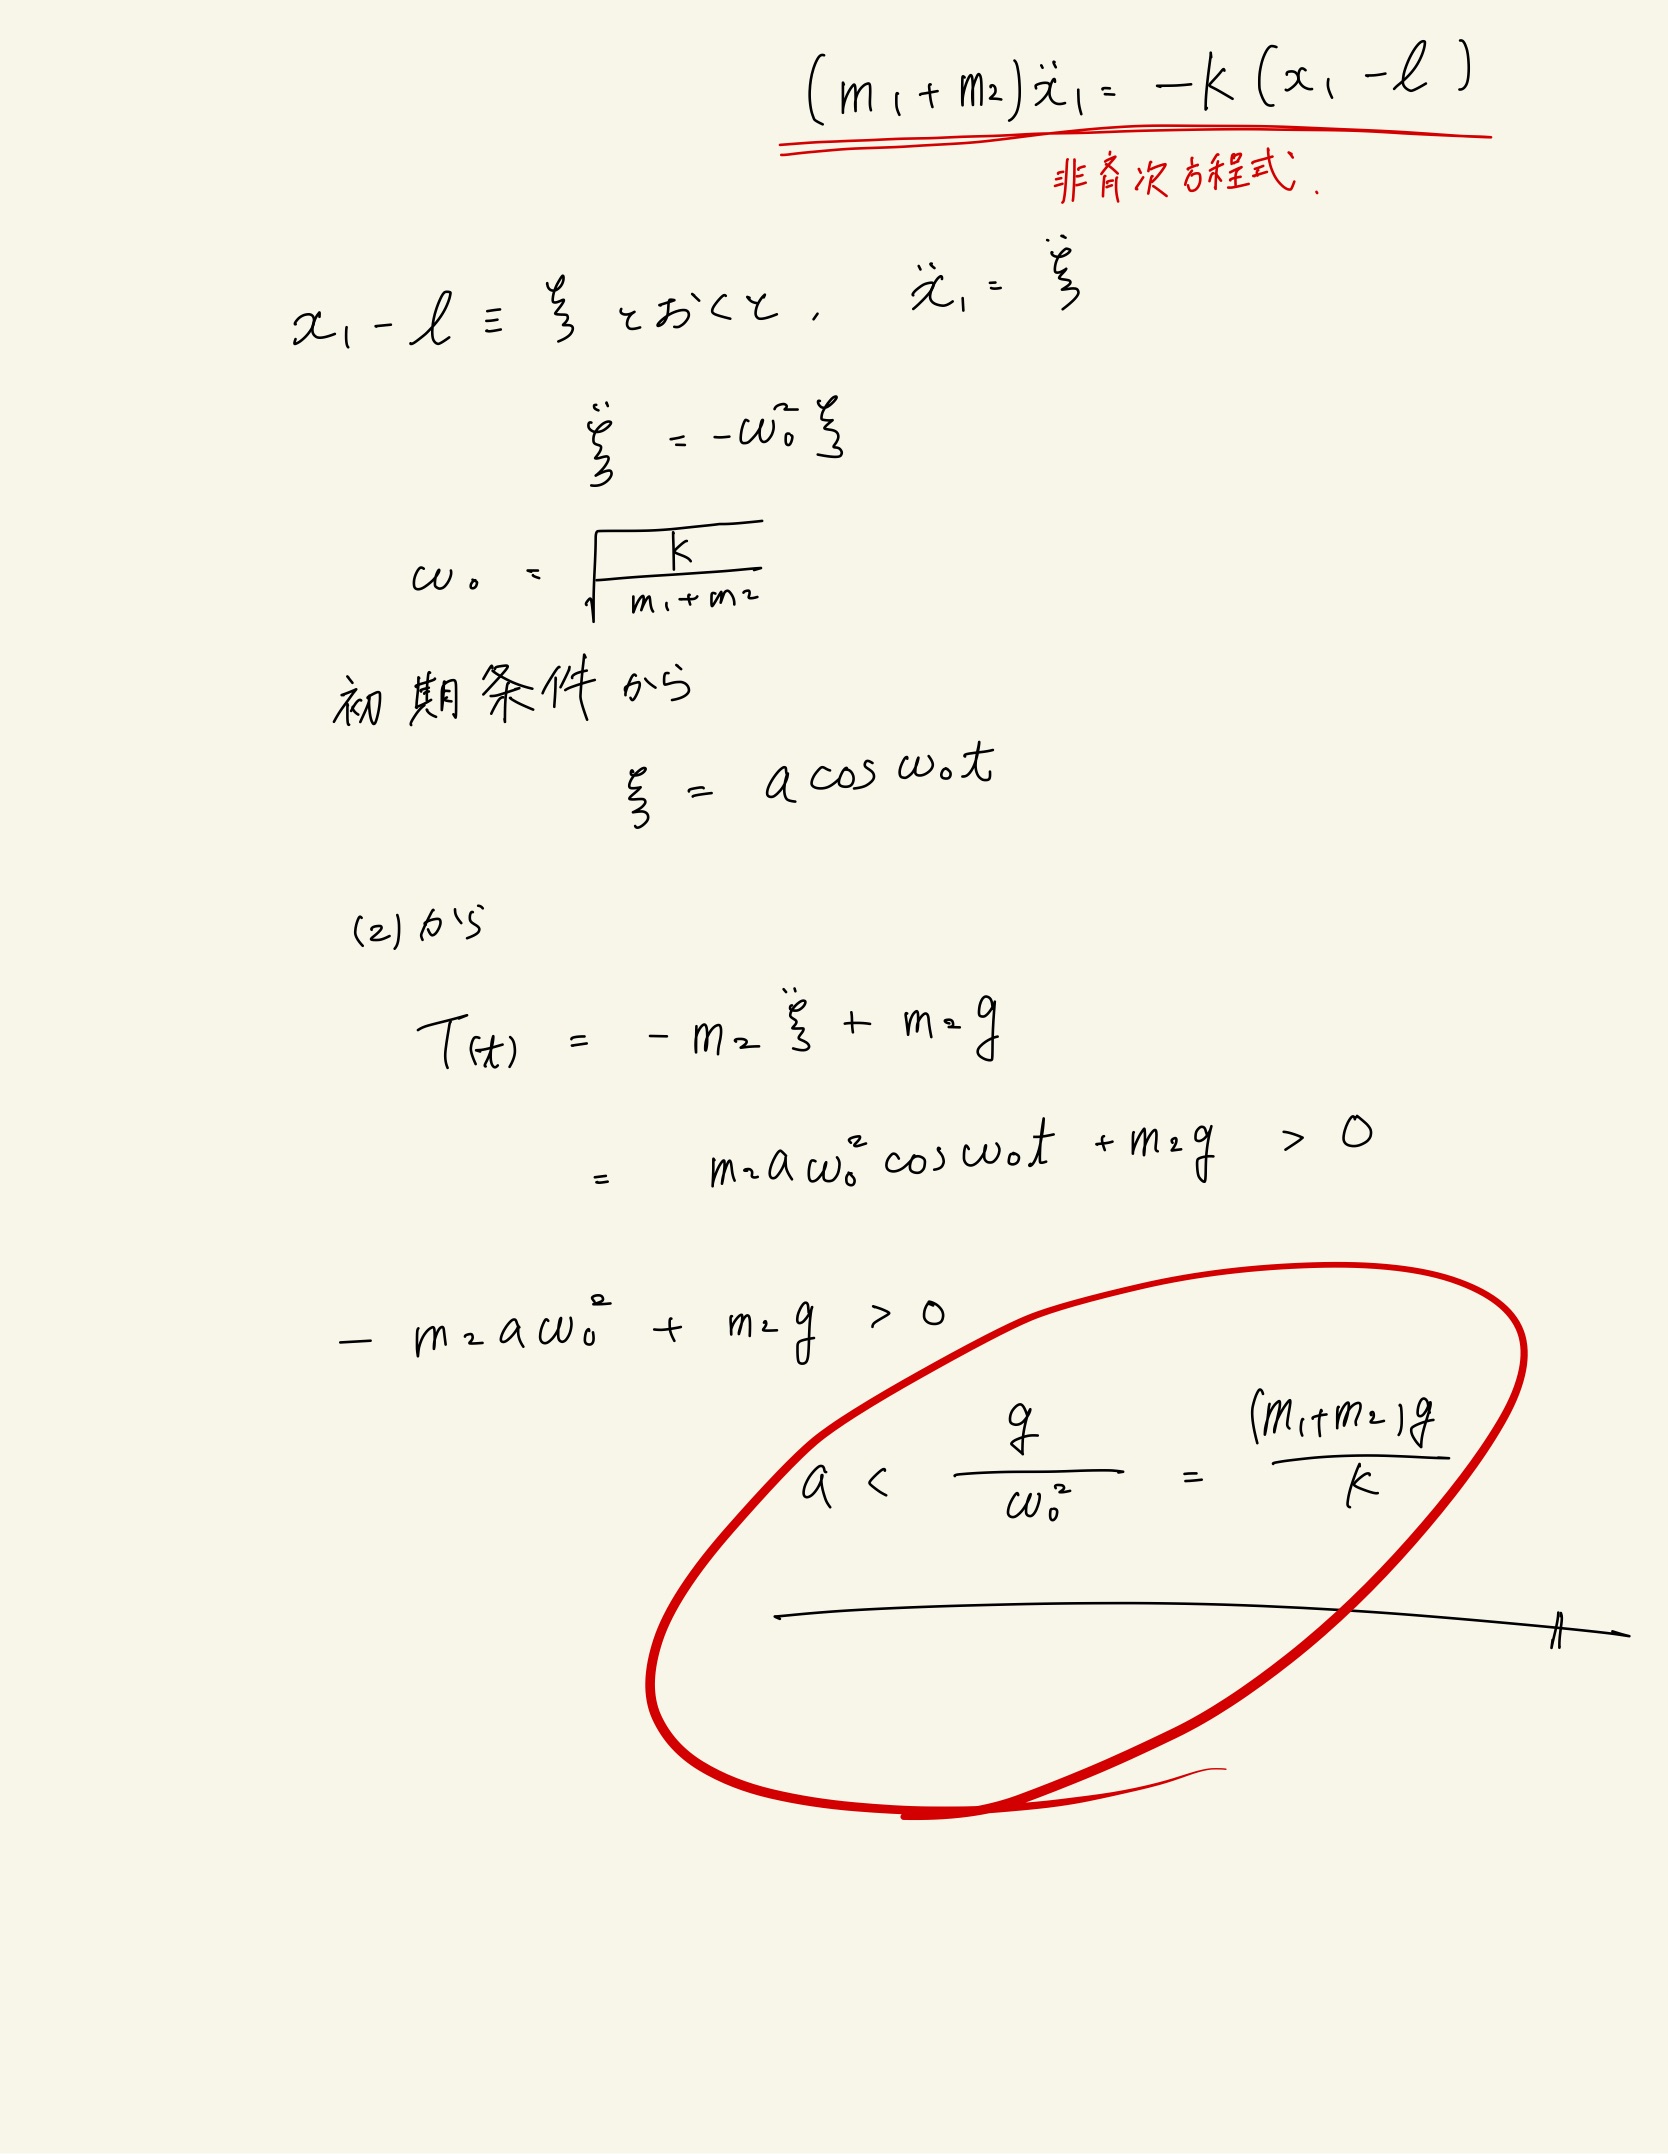 (m₁+m₂)ẍ₁ = -k(x₁-l)
非斉次方程式.
x₁-l ≡ ξ とおくと, ẍ₁ = ξ̈
ξ̈ = -ω₀²ξ
ω₀ = √(k/(m₁+m₂))
初期条件から
ξ = a cos ω₀t
(2)から
T(t) = -m₂ξ̈ + m₂g
= m₂aω₀² cos ω₀t + m₂g > 0
- m₂aω₀² + m₂g > 0
a < g/ω₀² = (m₁+m₂)g/k